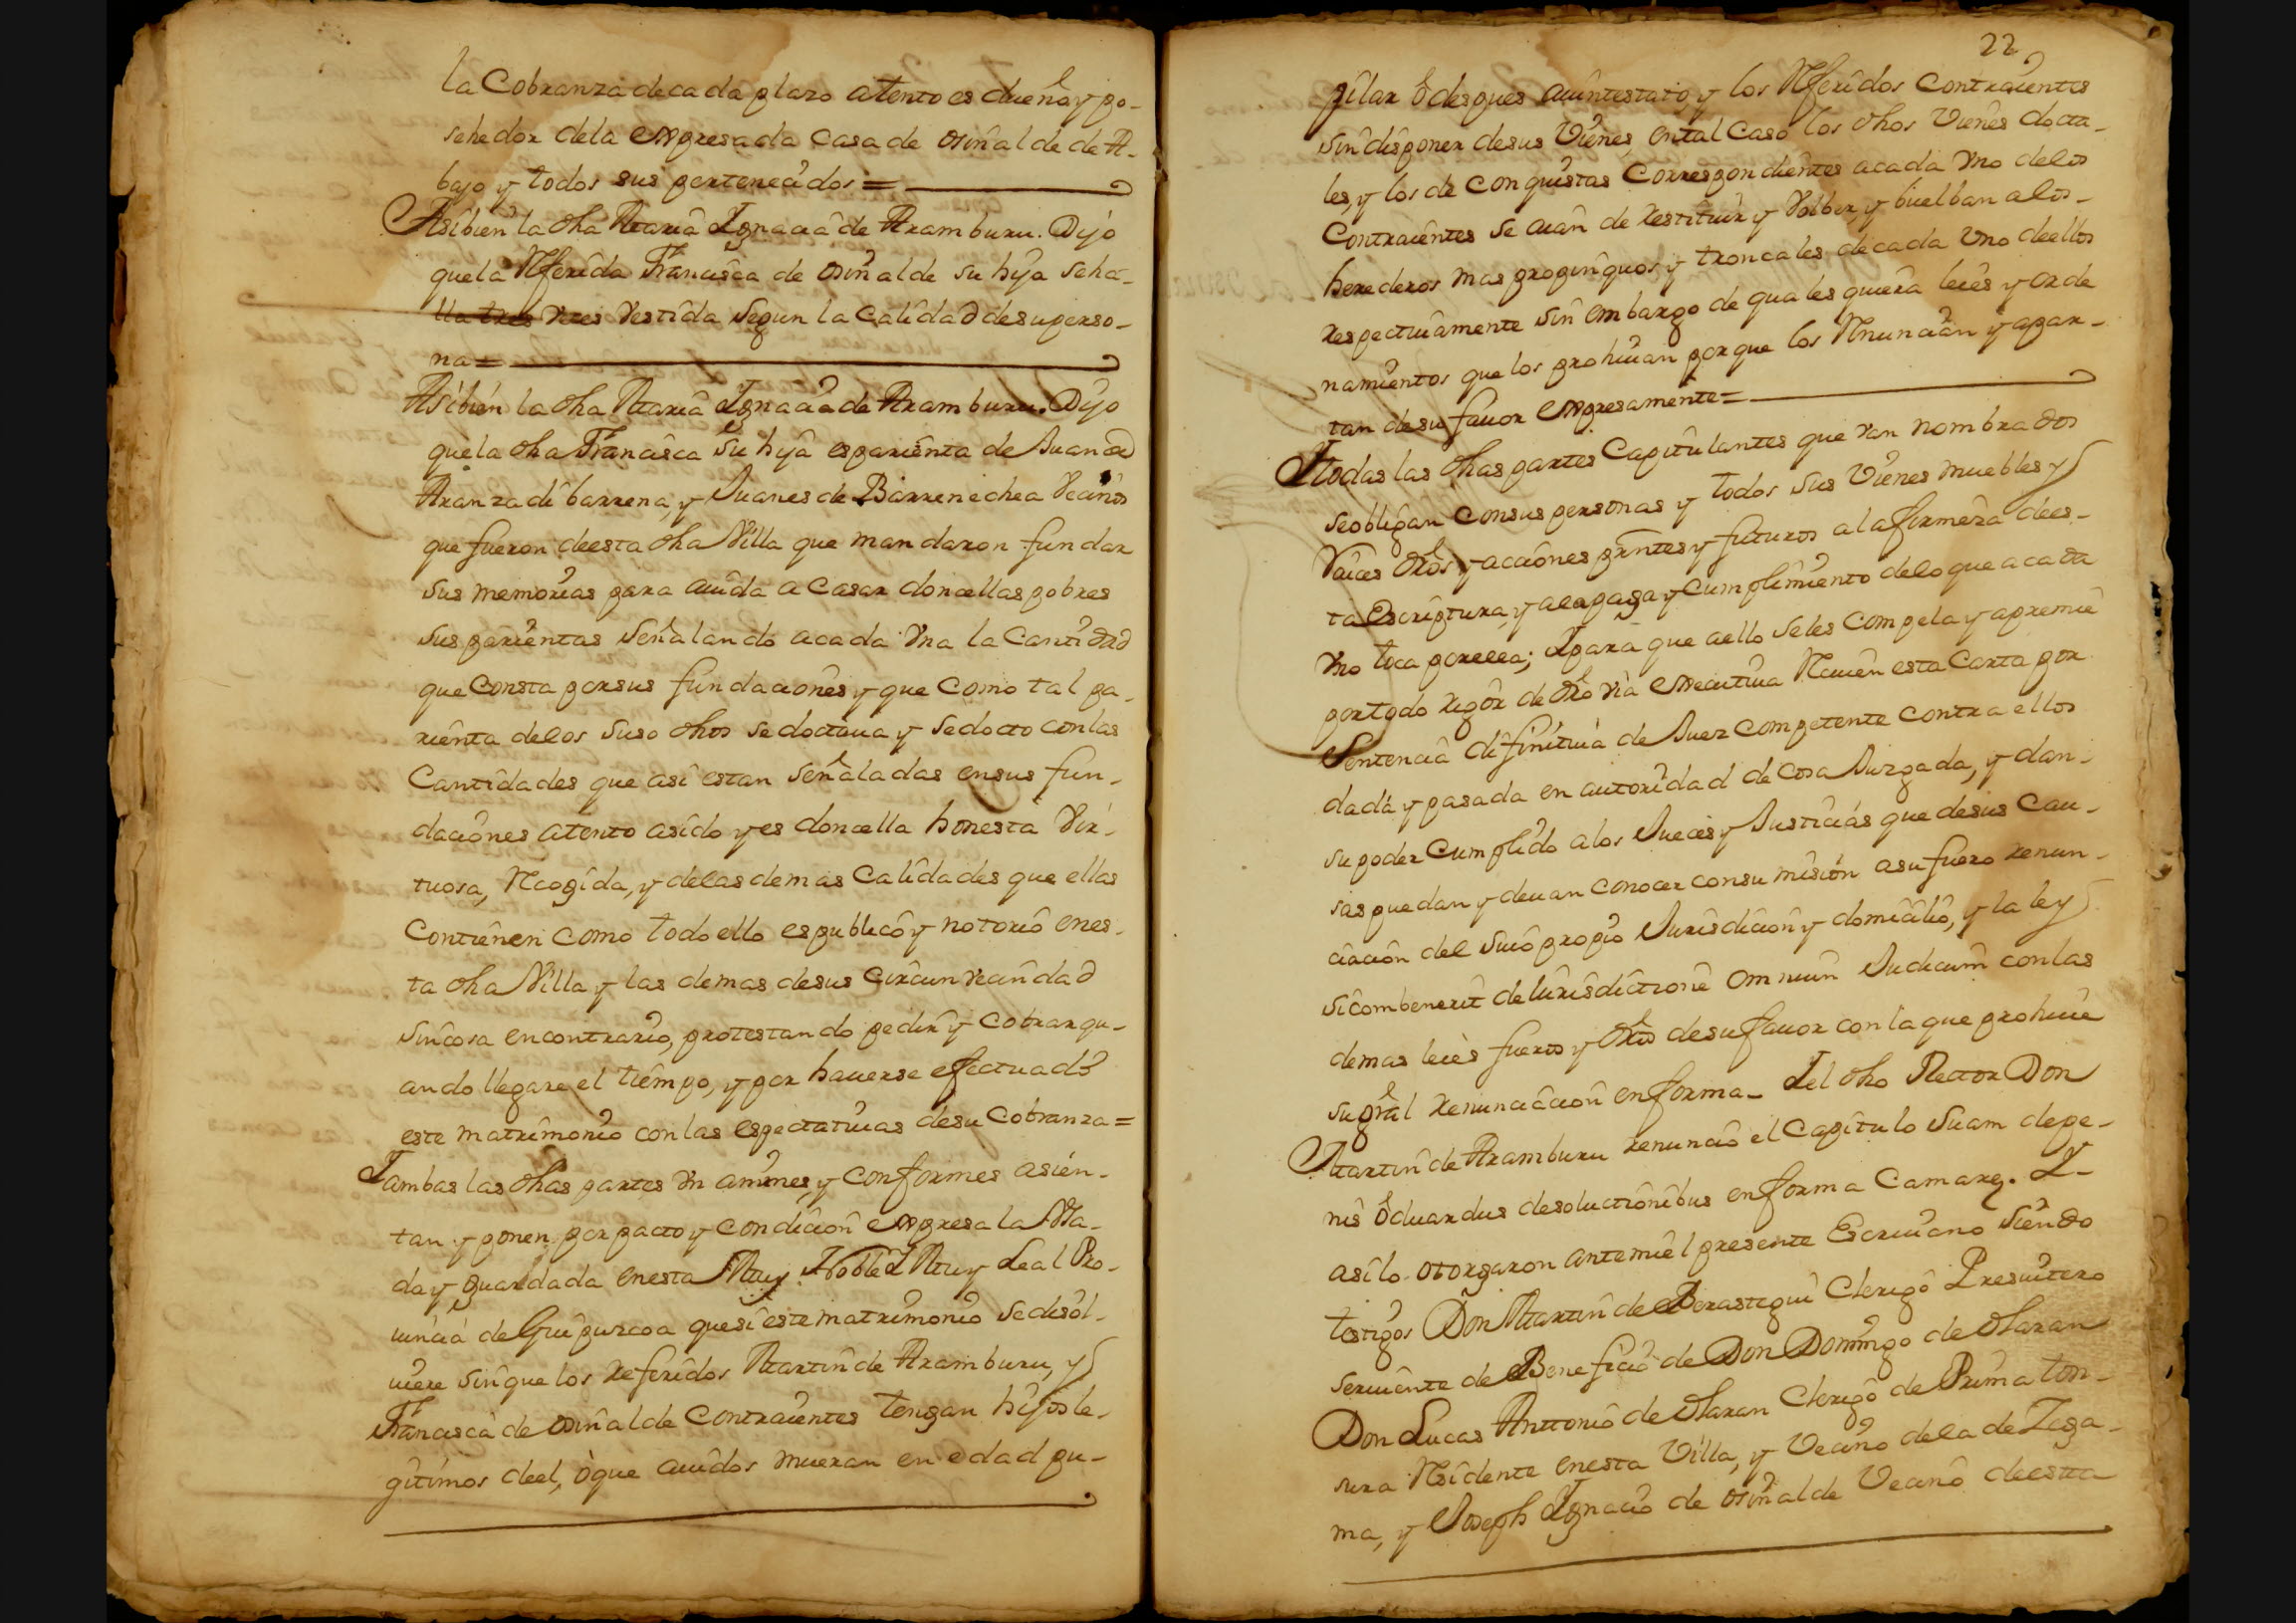 la Cobranza de cada plazo atento es dueña y po-
sehedor dela expresada Casa de osiñalde de A-
bajo y todos sus pertenecidos =
Asibien la dha Maria Ignacia de Aramburu. Dijo
que la Referida Francisca de osiñalde su hija seha-
lla tres veces vestida segun la Calidad desuperso-
na =
Asibien la dha Maria Ignacia de Aramburu. Dijo
que la dha Francisca su hija es parienta de Juan de
Aranzadi barrena, y Juanes de Barrenechea Vecinos
que fueron deesta dha Villa que mandaron fundar
sus memorias para aiuda a Casar doncellas pobres
sus parientas señalando acada Vna la Cantidad
que Consta porsus fundaciones y que como tal pa-
rienta delos suso dhos se doctaua y sedocto con las
Cantidades que asi estan señaladas ensus fun-
daciones atento asido y es doncella honesta Vir-
tuosa, Recogida, y delas demas Calidades que ellas
Contienen como todo ello es publico y notorio enes-
ta dha Villa y las demas desus Circunvecindad
sincosa encontrario, protestando pedir y cobrar qu-
ando llegare el tiempo, y por hauerse efectuado
este matrimonio con las espectatiuas desu Cobranza =
Iambas las dhas partes Vnanimes, y conformes asien-
tan y ponen por pacto y condicion expresa la Vsa-
da y guardada enesta Muy Noble I Muy Leal Pro-
uincia de Guipuzcoa quesi este matrimonio sedisol-
uiere sinque los referidos Martin de Aramburu, y
Francisca de osiñalde Contraientes tengan hijos le-
gitimos deel, ò que auidos mueran en edad pu-
22
pilar ò despues auintestato, y los Referidos Contraientes
sin disponer desus Vienes, ental Caso los dhos Vienes docta-
les, y los de Conquistas Correspondientes acada Vno delos
Contraientes se aian de restituir y Volber, y buelban alos
herederos mas propinquos, y troncales decada Vno deellos
respectiuamente sin embargo de quales quiera leies y orde
namientos que los prohiuan porque los Renuncian y apar-
tan desu fauor expresamente =
Itodas las dhas partes Capitulantes que van nombrados
se obligan Consus personas y todos sus Vienes muebles y
Raices dros y acciones prntes y futuros ala firmeza dees-
ta Escriptura, y ala paga y Cumplimiento delo que acada
Vno toca porella; I para que aello seles Compela y apremie
portodo rigor de dro via executiua Reciuen esta Carta por
Sentencia difinitiua de Juez Competente contra ellos
dada y pasada en autoridad de Cosa Juzgada, y dan
su poder Cumplido alos Jueces y Justicias que desus Cau-
sas puedan y deuan Conocer consumision asu fuero renun-
ciacion del suio propio Jurisdicion y domicilio, y la ley
sicombenerit de Iurisdictione omnium Judicum con las
demas leies fueros y dros desu fauor con la que prohiue
su gral renunciacion enforma. I el dho Rector Don
Martin de Aramburu renuncio el Capitulo Suam depe-
nis oduardus desolutionibus enforma Camare. I
asilo otorgaron antemi el presente Escriuano siendo
testigos Don Martin de Berastegui Clerigo Presuitero
seruiente de Beneficio de Don Domingo de Olaran
Don Lucas Anttonio de Olaran Clerigo de Prima ton-
sura Residente enesta Villa, y Vecino dela de Zega-
ma, y Joseph Ignacio de osiñalde Vecino deestta